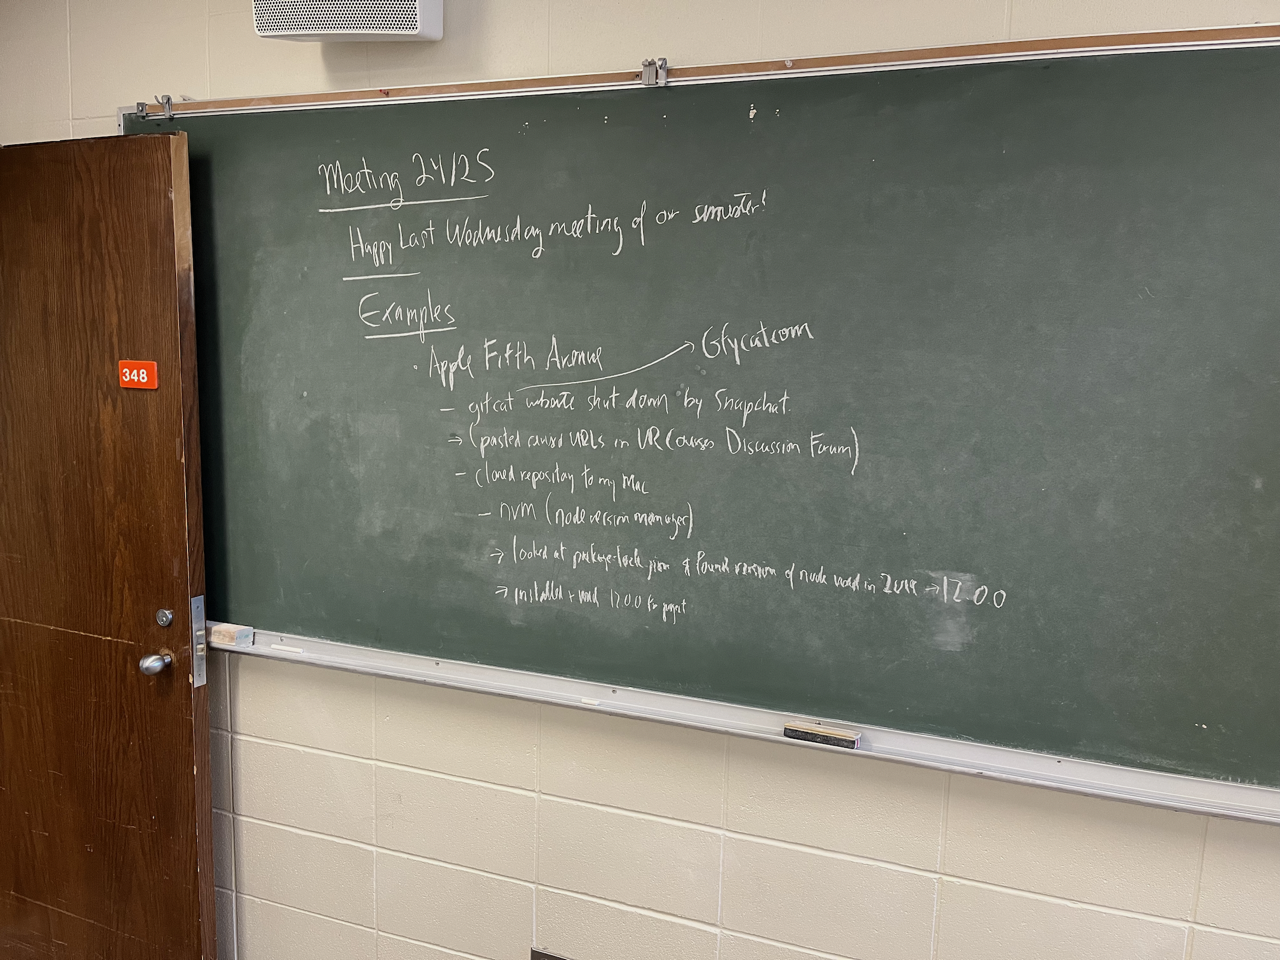 Meeting 24/25
Happy Last Wednesday meeting of our semester!
Examples
• Apple Fifth Avenue
→ Gfycat.com
- gifcat website shut down by Snapchat.
→ (pasted URLs in URCourses Discussion Forum)
- cloned repository to my Mac
- nvm (node version manager)
→ looked at package-lock.json & found version of node used in → 12.0.0
→ installed + used 12.0.0 for project
348